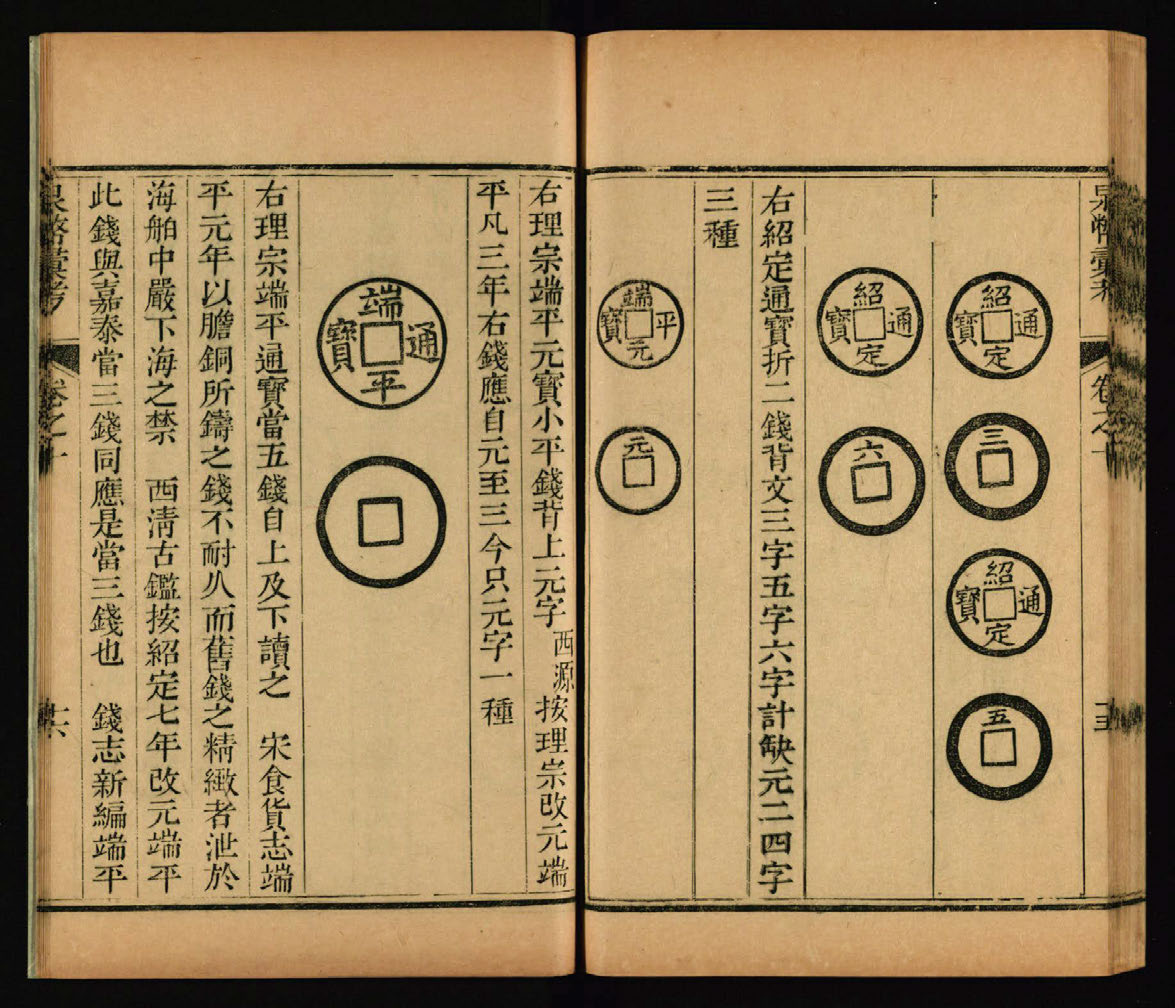 泉幣彙考
卷之十
紹定通寶
三
紹定通寶
五
紹定通寶
六
右紹定通寶折二錢背文三字五字六字計缺元二四字
三種
端平元寶
元
右理宗端平元寶小平錢背上元字 西源 按理宗改元端
平凡三年右錢應自元至三今只元字一種
端平通寶
右理宗端平通寶當五錢自上及下讀之 宋食貨志端
平元年以膽銅所鑄之錢不耐久而舊錢之精緻者泄於
海舶中嚴下海之禁 西清古鑑按紹定七年改元端平
此錢與嘉泰當三錢同應是當三錢也 錢志新編端平
泉幣彙考
卷之十